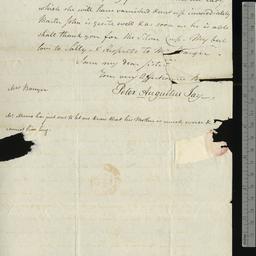 which she will have vanished
Master John is quite well & as soon as he is able
shall thank you for the Silver Cup. My best
love to Sally & Respects to Mr
I am my dear Sister
your very Affectionate Br
Peter Augustus Jay.
Mrs Banyer
Mr Munro has just sent to let me know that his Mother is much worse &
cannot live long.